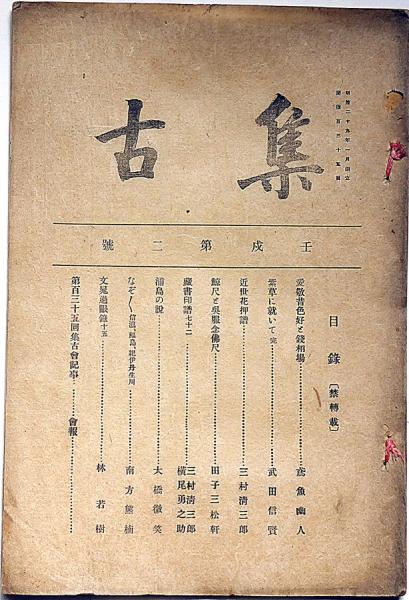 明治二十九年一月創立
開催百三十五回
集古
壬戌第二號
目錄
〔禁轉載〕
愛敬昔色好と錢相場…………鳶魚幽人
紫草に就いて 完…………武田信賢
近世花押譜…………三村淸三郎
鯨尺と吳服念佛尺…………田子三松軒
藏書印譜 七十二…………三村淸三郎 橫尾勇之助
浦島の說…………大橋微笑
なぞ〱 信濃、福島、紀伊丹生川…………南方熊楠
文晁過眼錄 十五…………林若樹
第百三十五回集古會記事…………會報